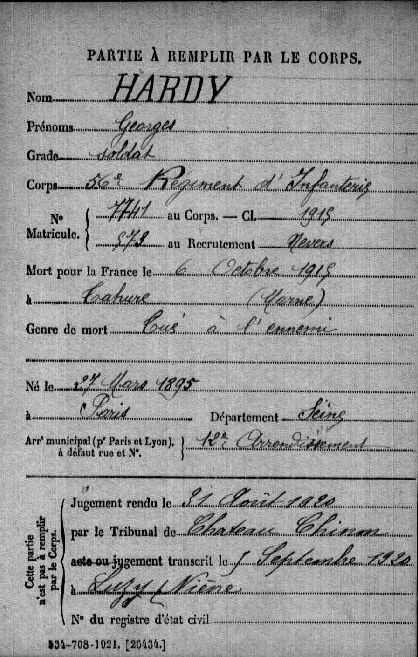 PARTIE À REMPLIR PAR LE CORPS.
Nom HARDY
Prénoms Georges
Grade soldat
Corps 56e Régiment d'Infanterie
Nº Matricule. { 7741 au Corps. — Cl. 1915
978 au Recrutement Nevers
Mort pour la France le 6 Octobre 1915
à Tahure (Marne)
Genre de mort Tué à l'ennemi
Né le 27 Mars 1895
à Paris Département Seine
Arrt municipal (pr Paris et Lyon), à défaut rue et Nº. } 12e Arrondissement
Cette partie n'est pas à remplir par le Corps.
Jugement rendu le 31 Août 1920
par le Tribunal de Chateau Chinon
acte ou jugement transcrit le 5 Septembre 1920
à Luzy (Nièvre)
Nº du registre d'état civil
534-708-1921. [26434.]